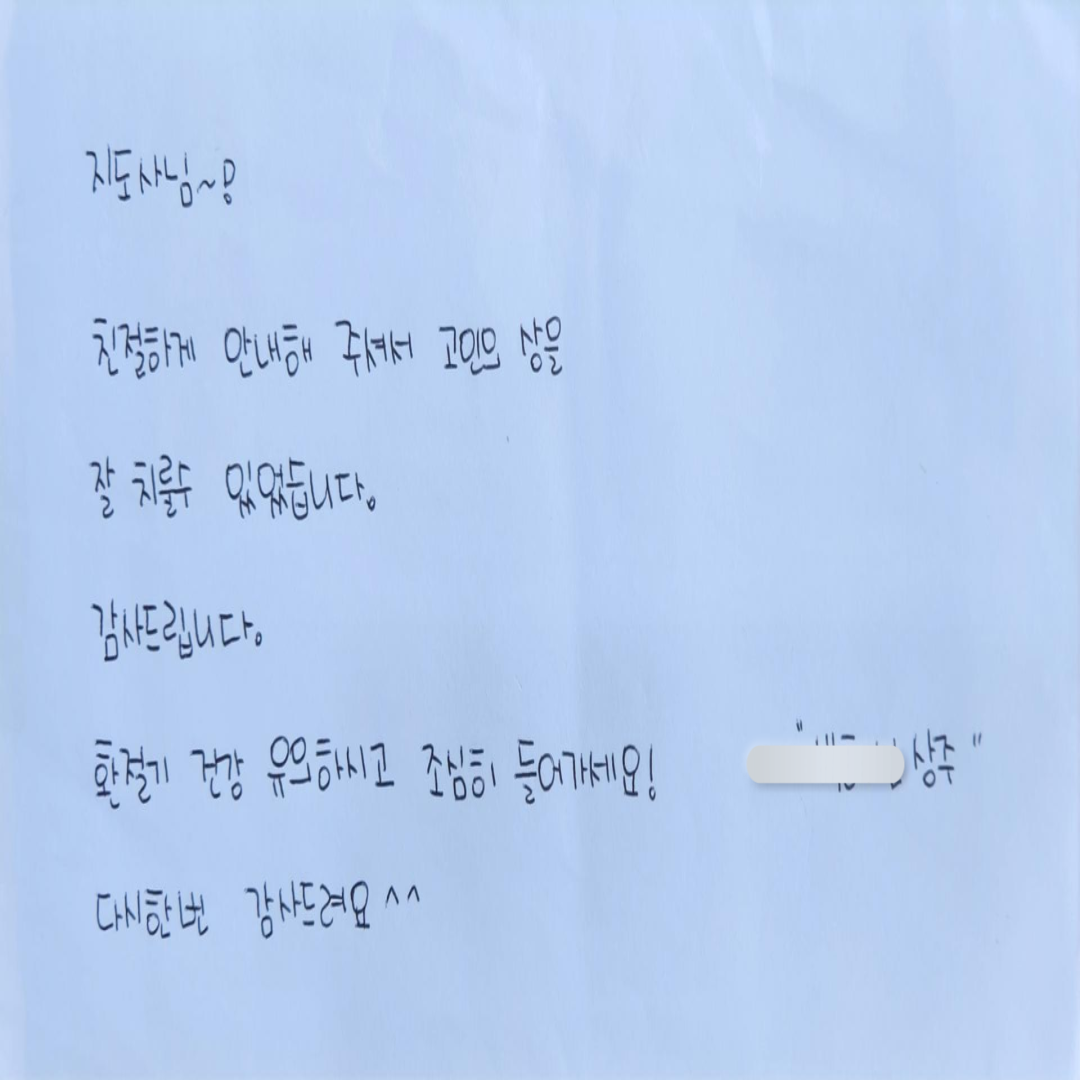 지도사님~!
친절하게 안내해 주셔서 고인의 상을
잘 치룰수 있었듭니다.
감사드립니다.
환절기 건강 유의하시고 조심히 들어가세요! " 상주 "
다시한번 감사드려요 ^^